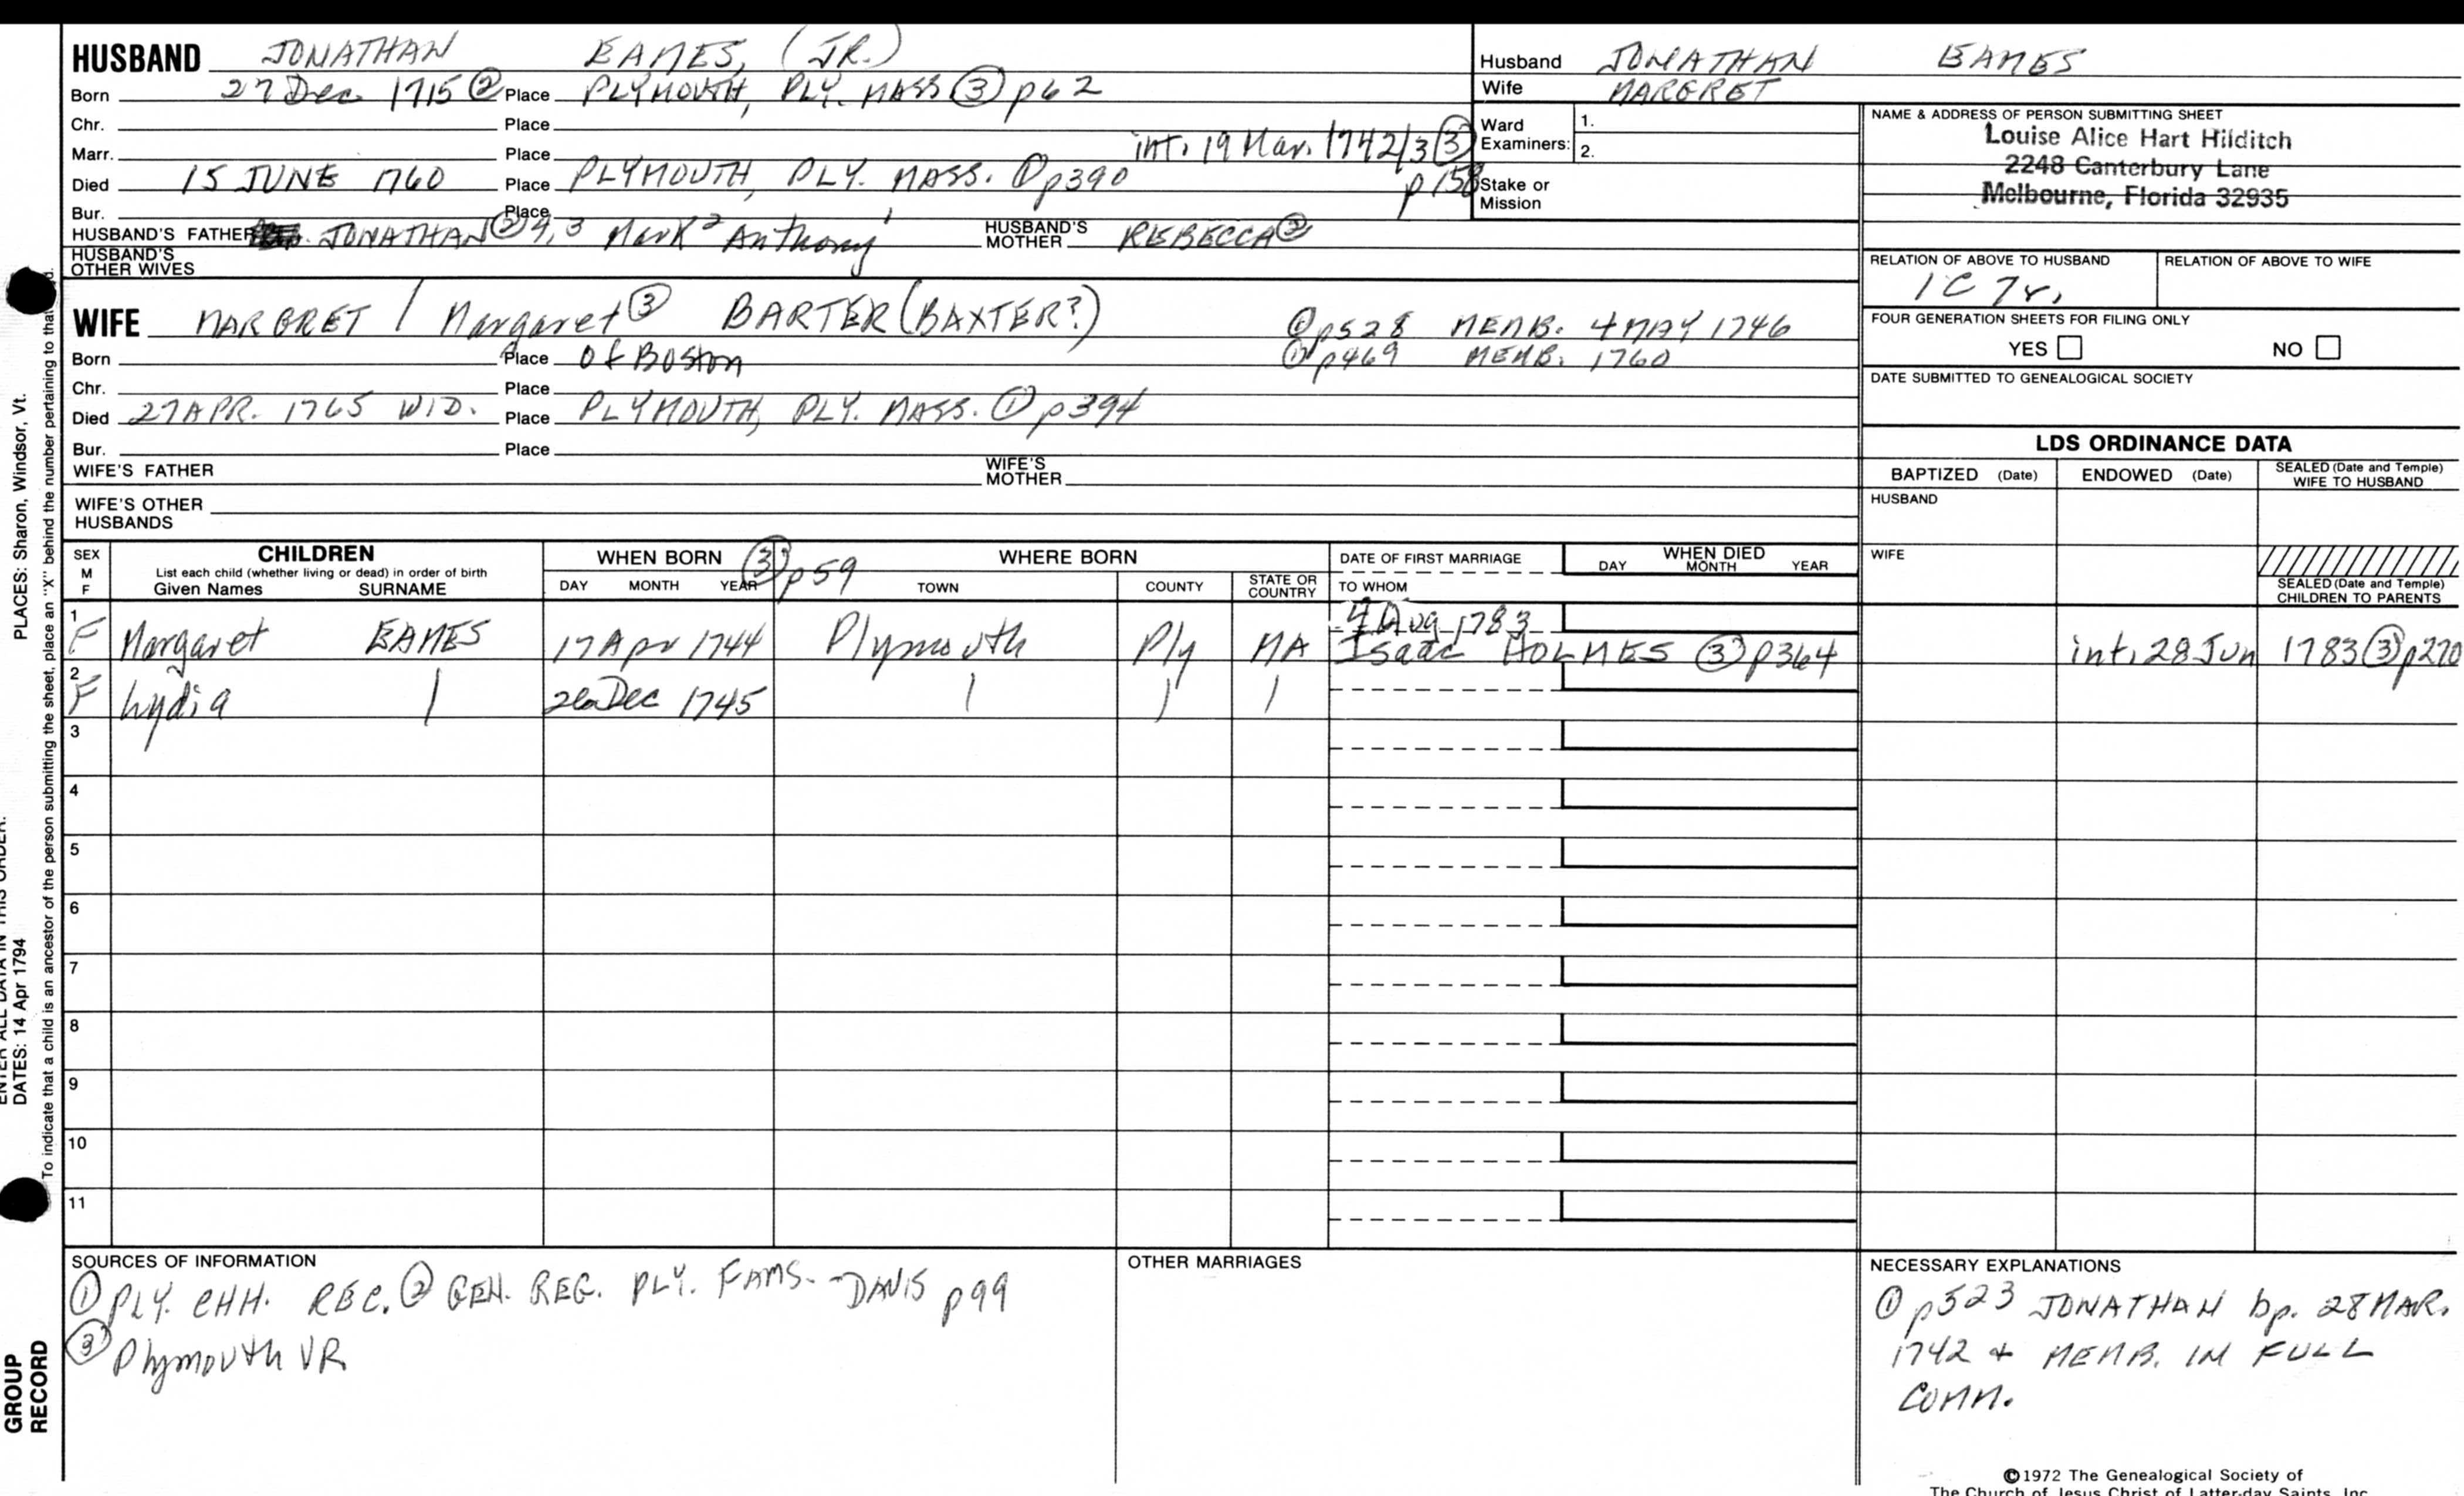 HUSBAND JONATHAN EAMES, (JR.)
Born 27 Dec 1715 ② Place PLYMOUTH, PLY. MASS ③ p62
Chr. Place
Marr. Place int. 19 Mar. 1742/3 ③ p158
Died 15 JUNE 1760 Place PLYMOUTH, PLY. MASS. ① p390
Bur. Place
HUSBAND'S FATHER JONATHAN ② 4, 3 Mark 2 Anthony 1 HUSBAND'S MOTHER REBECCA ②
HUSBAND'S OTHER WIVES
Husband JONATHAN EAMES
Wife MARGRET
Ward Examiners: 1.
2.
Stake or Mission
NAME & ADDRESS OF PERSON SUBMITTING SHEET
Louise Alice Hart Hilditch
2248 Canterbury Lane
Melbourne, Florida 32935
RELATION OF ABOVE TO HUSBAND RELATION OF ABOVE TO WIFE
1C 7r.
FOUR GENERATION SHEETS FOR FILING ONLY
YES NO
DATE SUBMITTED TO GENEALOGICAL SOCIETY
WIFE MARGRET / Margaret ③ BARTER (BAXTER?) ① p528 MEMB. 4 MAY 1746
Born Place of Boston ① p469 MEMB. 1760
Chr. Place
Died 27 APR. 1765 WID. Place PLYMOUTH, PLY. MASS. ① p394
Bur. Place
WIFE'S FATHER WIFE'S MOTHER
WIFE'S OTHER HUSBANDS
LDS ORDINANCE DATA
BAPTIZED (Date) ENDOWED (Date) SEALED (Date and Temple) WIFE TO HUSBAND
HUSBAND
WIFE
SEALED (Date and Temple) CHILDREN TO PARENTS
SEX M F CHILDREN WHEN BORN ③ p59 WHERE BORN DATE OF FIRST MARRIAGE WHEN DIED
List each child (whether living or dead) in order of birth
Given Names SURNAME DAY MONTH YEAR TOWN COUNTY STATE OR COUNTRY TO WHOM DAY MONTH YEAR
4 Aug 1783
1 F Margaret EAMES 17 Apr 1744 Plymouth Ply MA Isaac HOLMES ③ p364 int. 28 Jun 1783 ③ p270
2 F Lydia | Dec 1745 | | |
3
4
5
6
7
8
9
10
11
SOURCES OF INFORMATION
① PLY. CHH. REC. ② GEN. REG. PLY. FAMS. - DAVIS p99
③ Plymouth VR
OTHER MARRIAGES
NECESSARY EXPLANATIONS
① p523 JONATHAN bp. 28 MAR.
1742 + MEMB. IN FULL
COMM.
©1972 The Genealogical Society of
The Church of Jesus Christ of Latter-day Saints, Inc.
PLACES: Sharon, Windsor, Vt.
To indicate that a child is an ancestor of the person submitting the sheet, place an "X" behind the number pertaining to that
ENTER ALL DATA IN THIS ORDER:
DATES: 14 Apr 1794
GROUP
RECORD